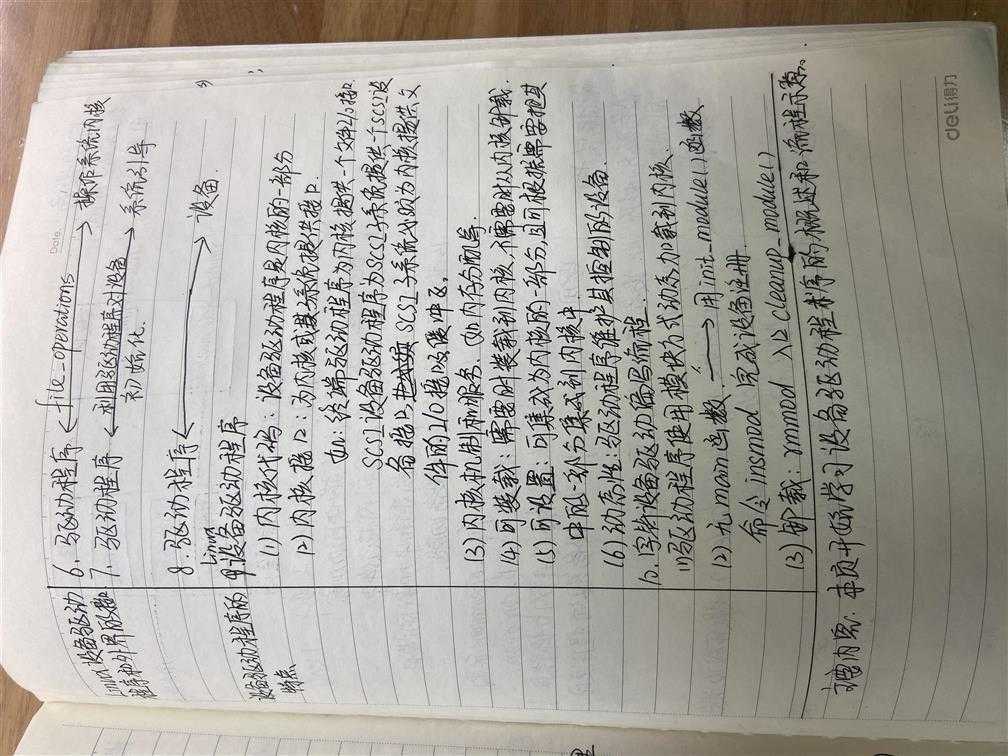 Date.
Linux设备驱动
程序和外界的接
6. 驱动程序 ← file_operations → 操作系统内核
7. 驱动程序 ← 利用驱动程序对设备 → 系统引导
初始化.
8. 驱动程序 ← → 设备.
设备驱动程序的
特点
9. Linux设备驱动程序
(1) 内核代码: 设备驱动程序是内核的一部分
(2) 内核接口: 为内核或其子系统提供接口.
如: 终端驱动程序为内核提供一个文件I/O接口.
SCSI设备驱动程序为SCSI子系统提供一个SCSI设
备接口, SCSI子系统也为内核提供文
件的I/O接口及缓冲区.
(3) 内核机制和服务. 如内存分配等
(4) 可装载: 需要时装载到内核, 不需要时从内核卸载.
(5) 可设置: 可集成为内核的一部分, 且可根据需要把其
中的一部分集成到内核中
(6) 动态性: 驱动程序维护其控制的设备.
10. 字符设备驱动编写流程.
(1) 驱动程序使用模块方式动态加载到内核.
(2) 无main函数. → 用init_module()函数
命令 insmod 完成设备注册
(3) 卸载: rmmod 入口 cleanup_module()
主要内容: 本页开始学习设备驱动程序的概述和流程示意。
deli得力